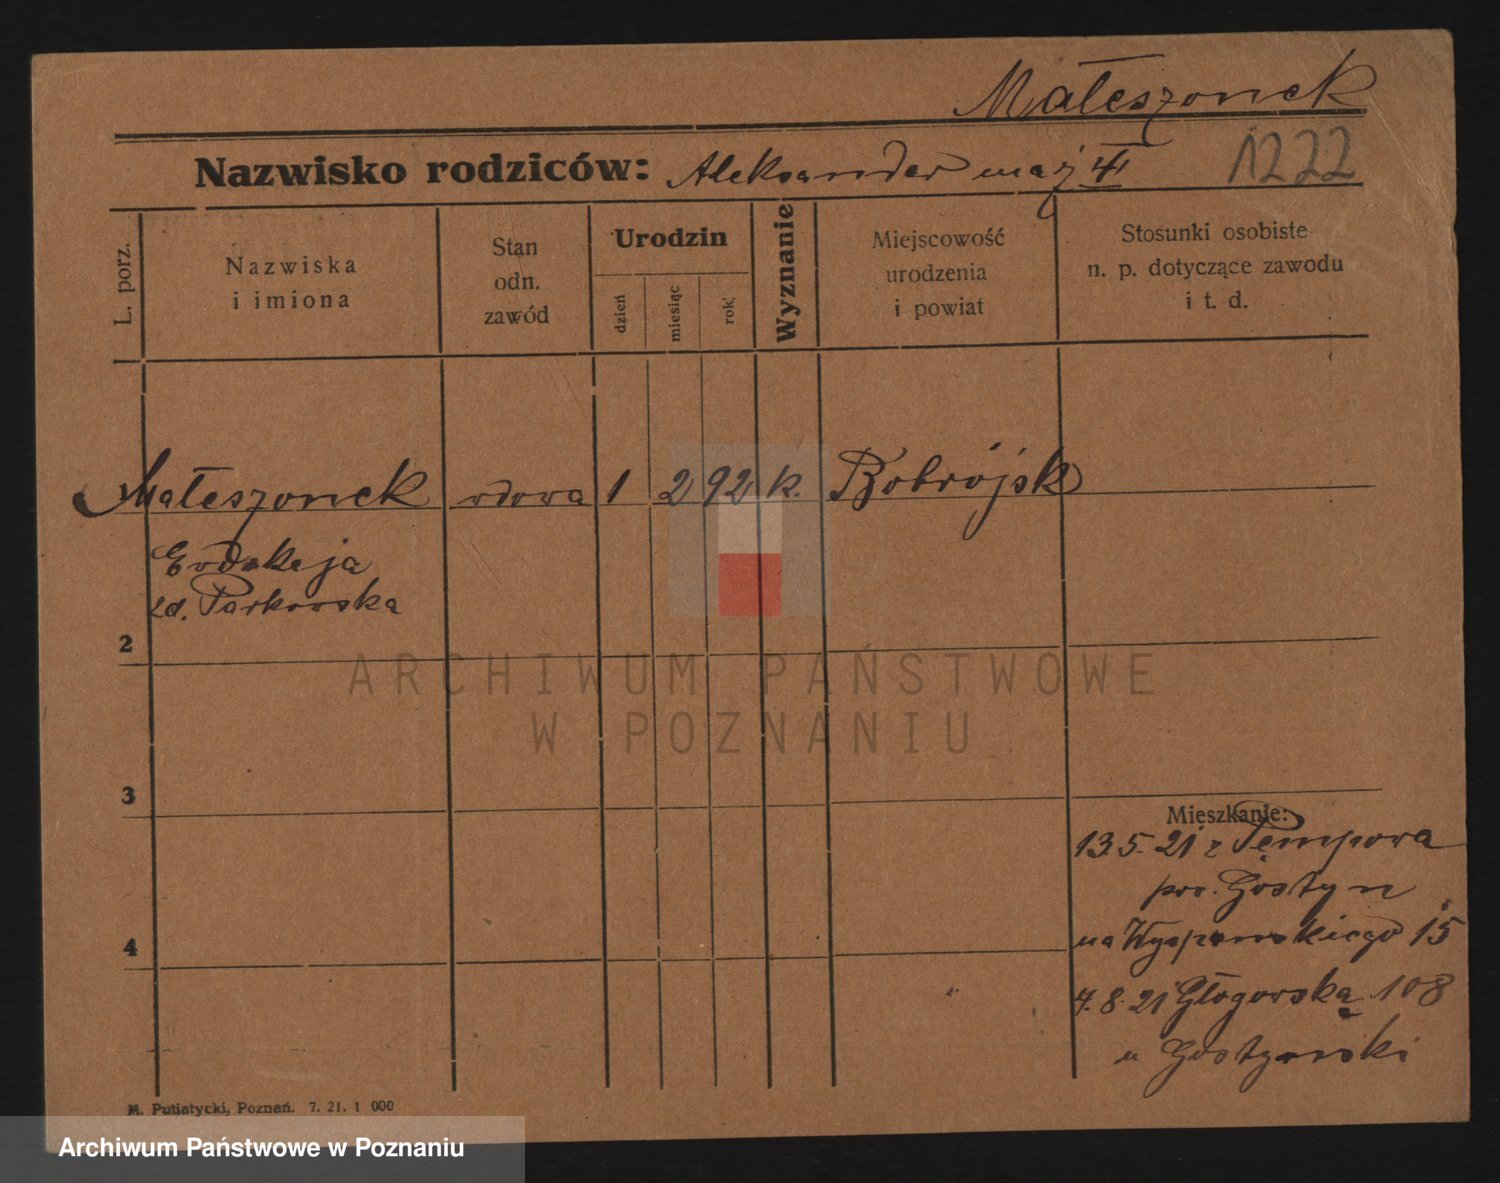 Małeszonek
Nazwisko rodziców: Aleksander mąż
1222
L. porz.
Nazwiska
i imiona
Stan
odn.
zawód
Urodzin
dzień
miesiąc
rok
Wyznanie
Miejscowość
urodzenia
i powiat
Stosunki osobiste
n. p. dotyczące zawodu
i t. d.
Małeszonek wdowa 1 2 92 k. Bobrójsk
Eudokeja
zd. Parkowska
2
3
4
Mieszkanie:
13.5.21 z
pow. Gostyn
na Wyspiańskiego 15
4.8.21 Głogowska 108
u Gostyński
M. Putiatycki, Poznań. 7. 21. 1 000
ARCHIWUM PAŃSTWOWE
W POZNANIU
Archiwum Państwowe w Poznaniu